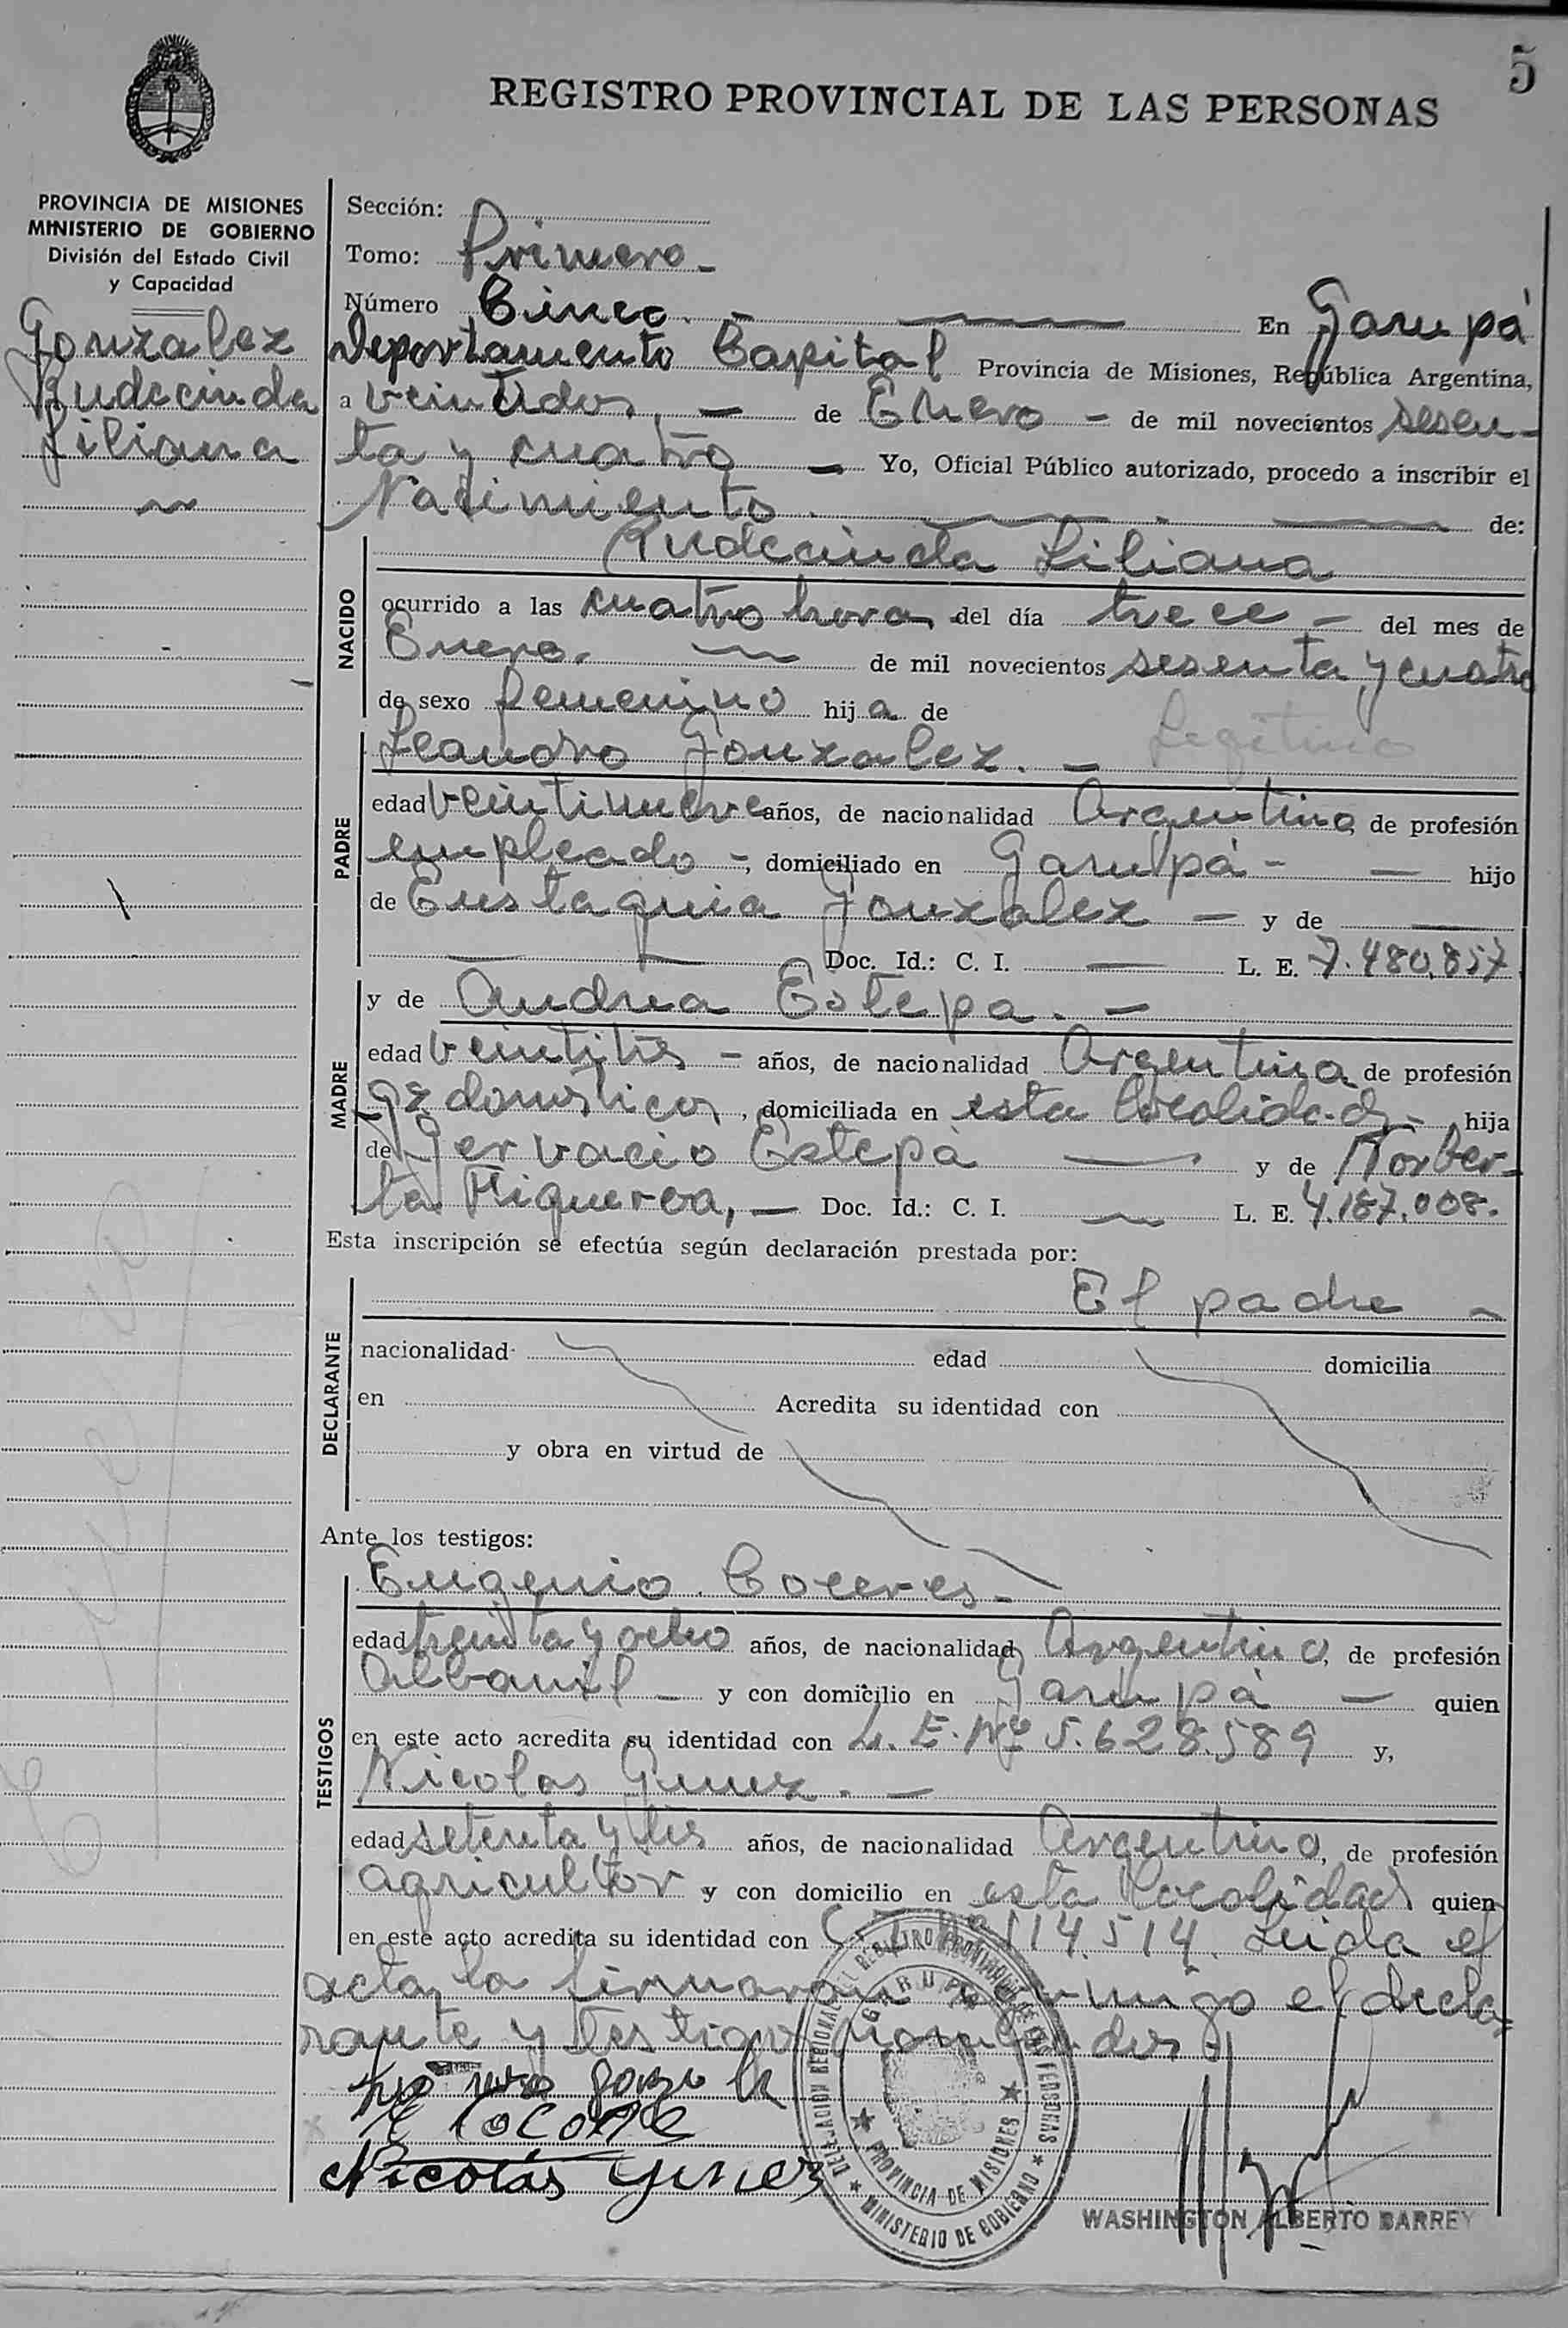 5
REGISTRO PROVINCIAL DE LAS PERSONAS
PROVINCIA DE MISIONES
MINISTERIO DE GOBIERNO
División del Estado Civil
y Capacidad
Gonzalez
Rudecinda
Liliana
Sección:
Tomo: Primero -
Número Cinco. - En Garupá
Departamento Capital Provincia de Misiones, República Argentina,
a veintidos, - de Enero - de mil novecientos sesen-
ta y cuatro - Yo, Oficial Público autorizado, procedo a inscribir el
Nacimiento. - de:
Rudecinda Liliana
NACIDO
ocurrido a las cuatro horas del día trece - del mes de
Enero. de mil novecientos sesenta y cuatro
de sexo femenino hija de
Leandro Gonzalez. - Legitimo
PADRE
edad veintinueve años, de nacionalidad Argentino de profesión
empleado -, domiciliado en Garupá - hijo
de Eustaquia Gonzalez - y de
Doc. Id.: C. I. L. E. 7.480.857
y de Andrea Estepa. -
MADRE
edad veintitrés - años, de nacionalidad Argentina de profesión
qz domésticos, domiciliada en esta localidad, - hija
de Gervacio Estepa y de Norber-
ta Figueroa, - Doc. Id.: C. I. L. E. 4.187.008.
Esta inscripción se efectúa según declaración prestada por:
El padre -
DECLARANTE
nacionalidad edad domicilia
en Acredita su identidad con
y obra en virtud de
Ante los testigos:
Eugenio Coceres -
TESTIGOS
edad treinta y ocho años, de nacionalidad Argentino, de profesión
Albanil - y con domicilio en Garupá - quien
en este acto acredita su identidad con L. E. Nº 5.628.589 y,
Nicolas Gimez. -
edad setenta y tres años, de nacionalidad Argentino, de profesión
agricultor y con domicilio en esta localidad quien
en este acto acredita su identidad con C. I. Nº 114.514. Leida el
acta, la firmaron conmigo el decla-
rante y testigos nombrados
Nicolás Gimez
DELEGACION REGIONAL DEL REGISTRO PROVINCIAL DE LAS PERSONAS
GARUPA
PROVINCIA DE MISIONES
MINISTERIO DE GOBIERNO
WASHINGTON ALBERTO BARREY